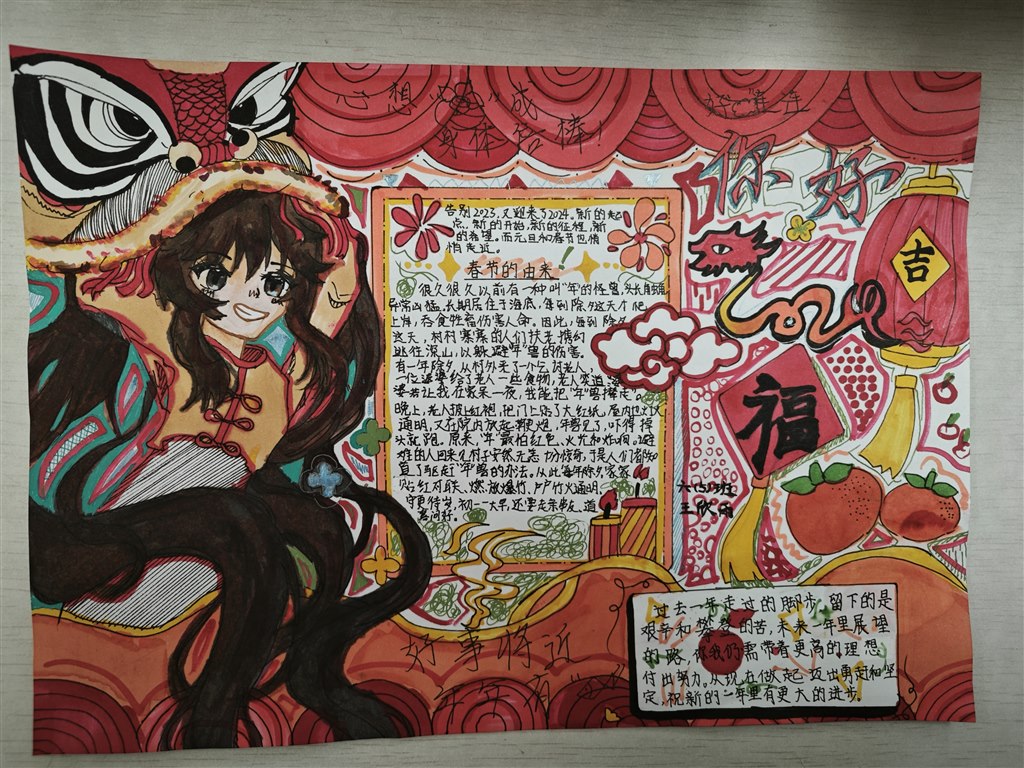 心想"事"成
身体倍棒！
好"龙"连连
你好
告别2023，又迎来了2024。新的起
点，新的开始，新的征程，新
的希望。而元旦和春节也悄
悄走近。
春节的由来
很久很久以前有一种叫"年"的怪兽，头长角
异常凶猛。长期居住于海底，每到除夕这天才爬
上岸，吞食牲畜伤害人命。因此，每到除夕
这天，村村寨寨的人们扶老携幼
逃往深山，以躲避"年"兽的伤害。
有一年除夕，从村外来了个乞讨老人，
一位婆婆给了老人一些食物，老人笑道：婆
婆若让我在家呆一夜，我能把"年"兽撵走。
晚上，老人披上红袍，把门上贴了大红纸，屋内
通明，又在院内放起鞭炮，年兽见了，吓得掉
头就跑。原来，"年"最怕红色、火光和炸响。避
难的人回来见村子安然无恙十分惊奇，于是人们都知
道了驱赶"年"兽的办法。从此每年除夕家家
贴红对联、燃放爆竹、户户灯火通明、
守更待岁。初一大早，还要走亲串友，道
喜问好。
吉
福
王欣雨
好事将近
年年有
过去一年走过的脚步，留下的是
艰辛和
的苦，未来一年里展望
的路，你我仍需带着更高的理想
付出努力。从现在做起，迈出勇敢和坚
定，祝新的一年里有更大的进步。